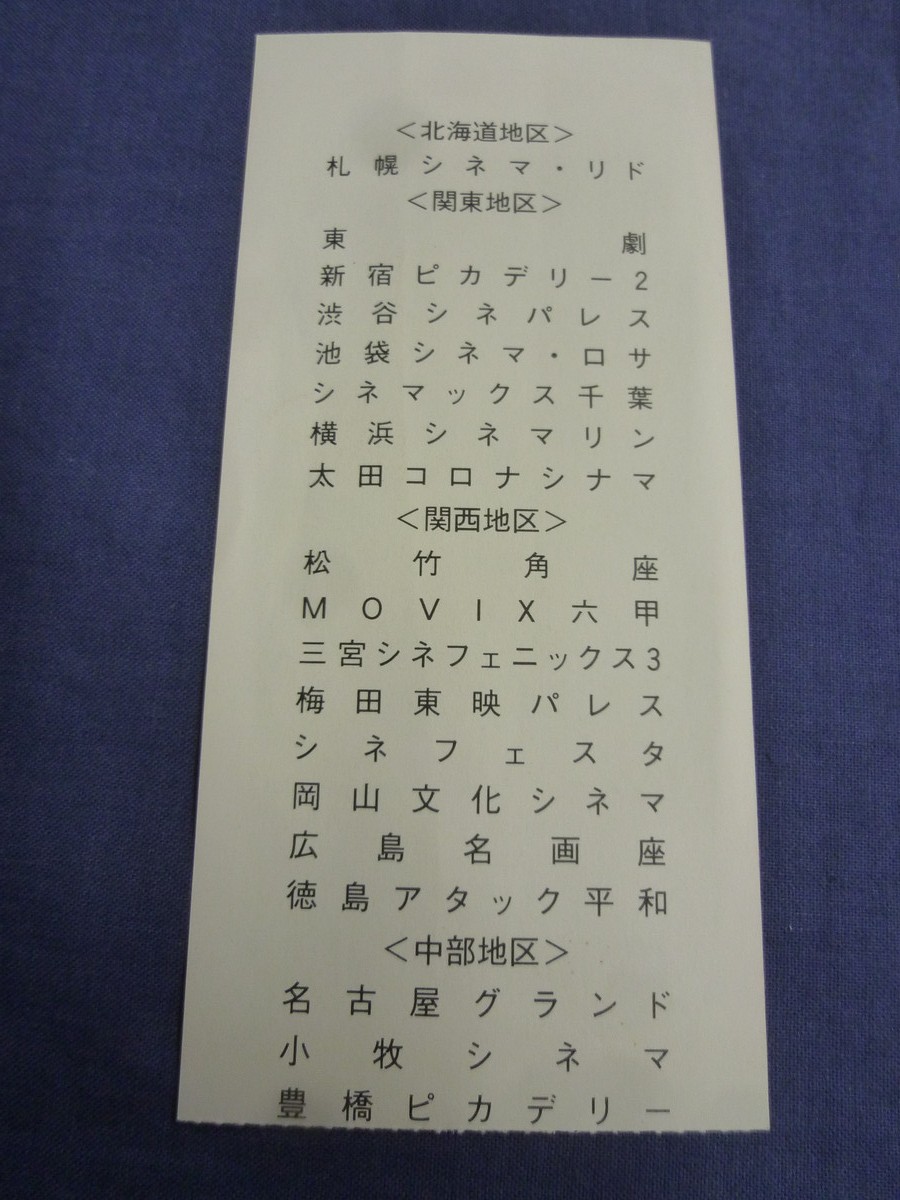 ＜北海道地区＞
札幌シネマ・リド
＜関東地区＞
東劇
新宿ピカデリー2
渋谷シネパレス
池袋シネマ・ロサ
シネマックス千葉
横浜シネマリン
太田コロナシナマ
＜関西地区＞
松竹角座
MOVIX六甲
三宮シネフェニックス3
梅田東映パレス
シネフェスタ
岡山文化シネマ
広島名画座
徳島アタック平和
＜中部地区＞
名古屋グランド
小牧シネマ
豊橋ピカデリー